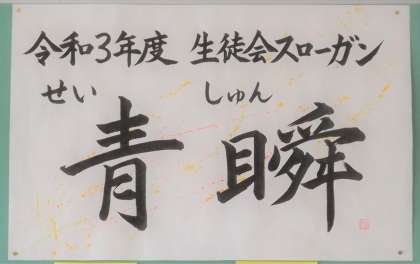 令和3年度 生徒会スローガン
せい しゅん
青瞬